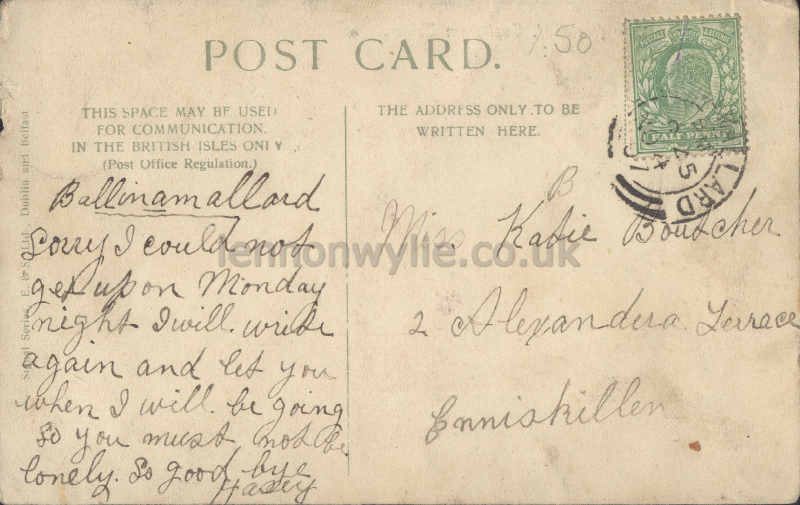 1.50
POST CARD.
THIS SPACE MAY BE USED
FOR COMMUNICATION.
IN THE BRITISH ISLES ONLY
(Post Office Regulation.)
THE ADDRESS ONLY TO BE
WRITTEN HERE.
HALF PENNY
LARD
25
07
Signal Series, E. & S. Ltd., Dublin and Belfast
Ballinamallard
Sorry I could not
get up on Monday
night I will write
again and let you
when I will be going
so you must not be
lonely. So good bye
B
Miss Katie Boutcher
2 Alexandera Terrace
Enniskillen
lennonwylie.co.uk